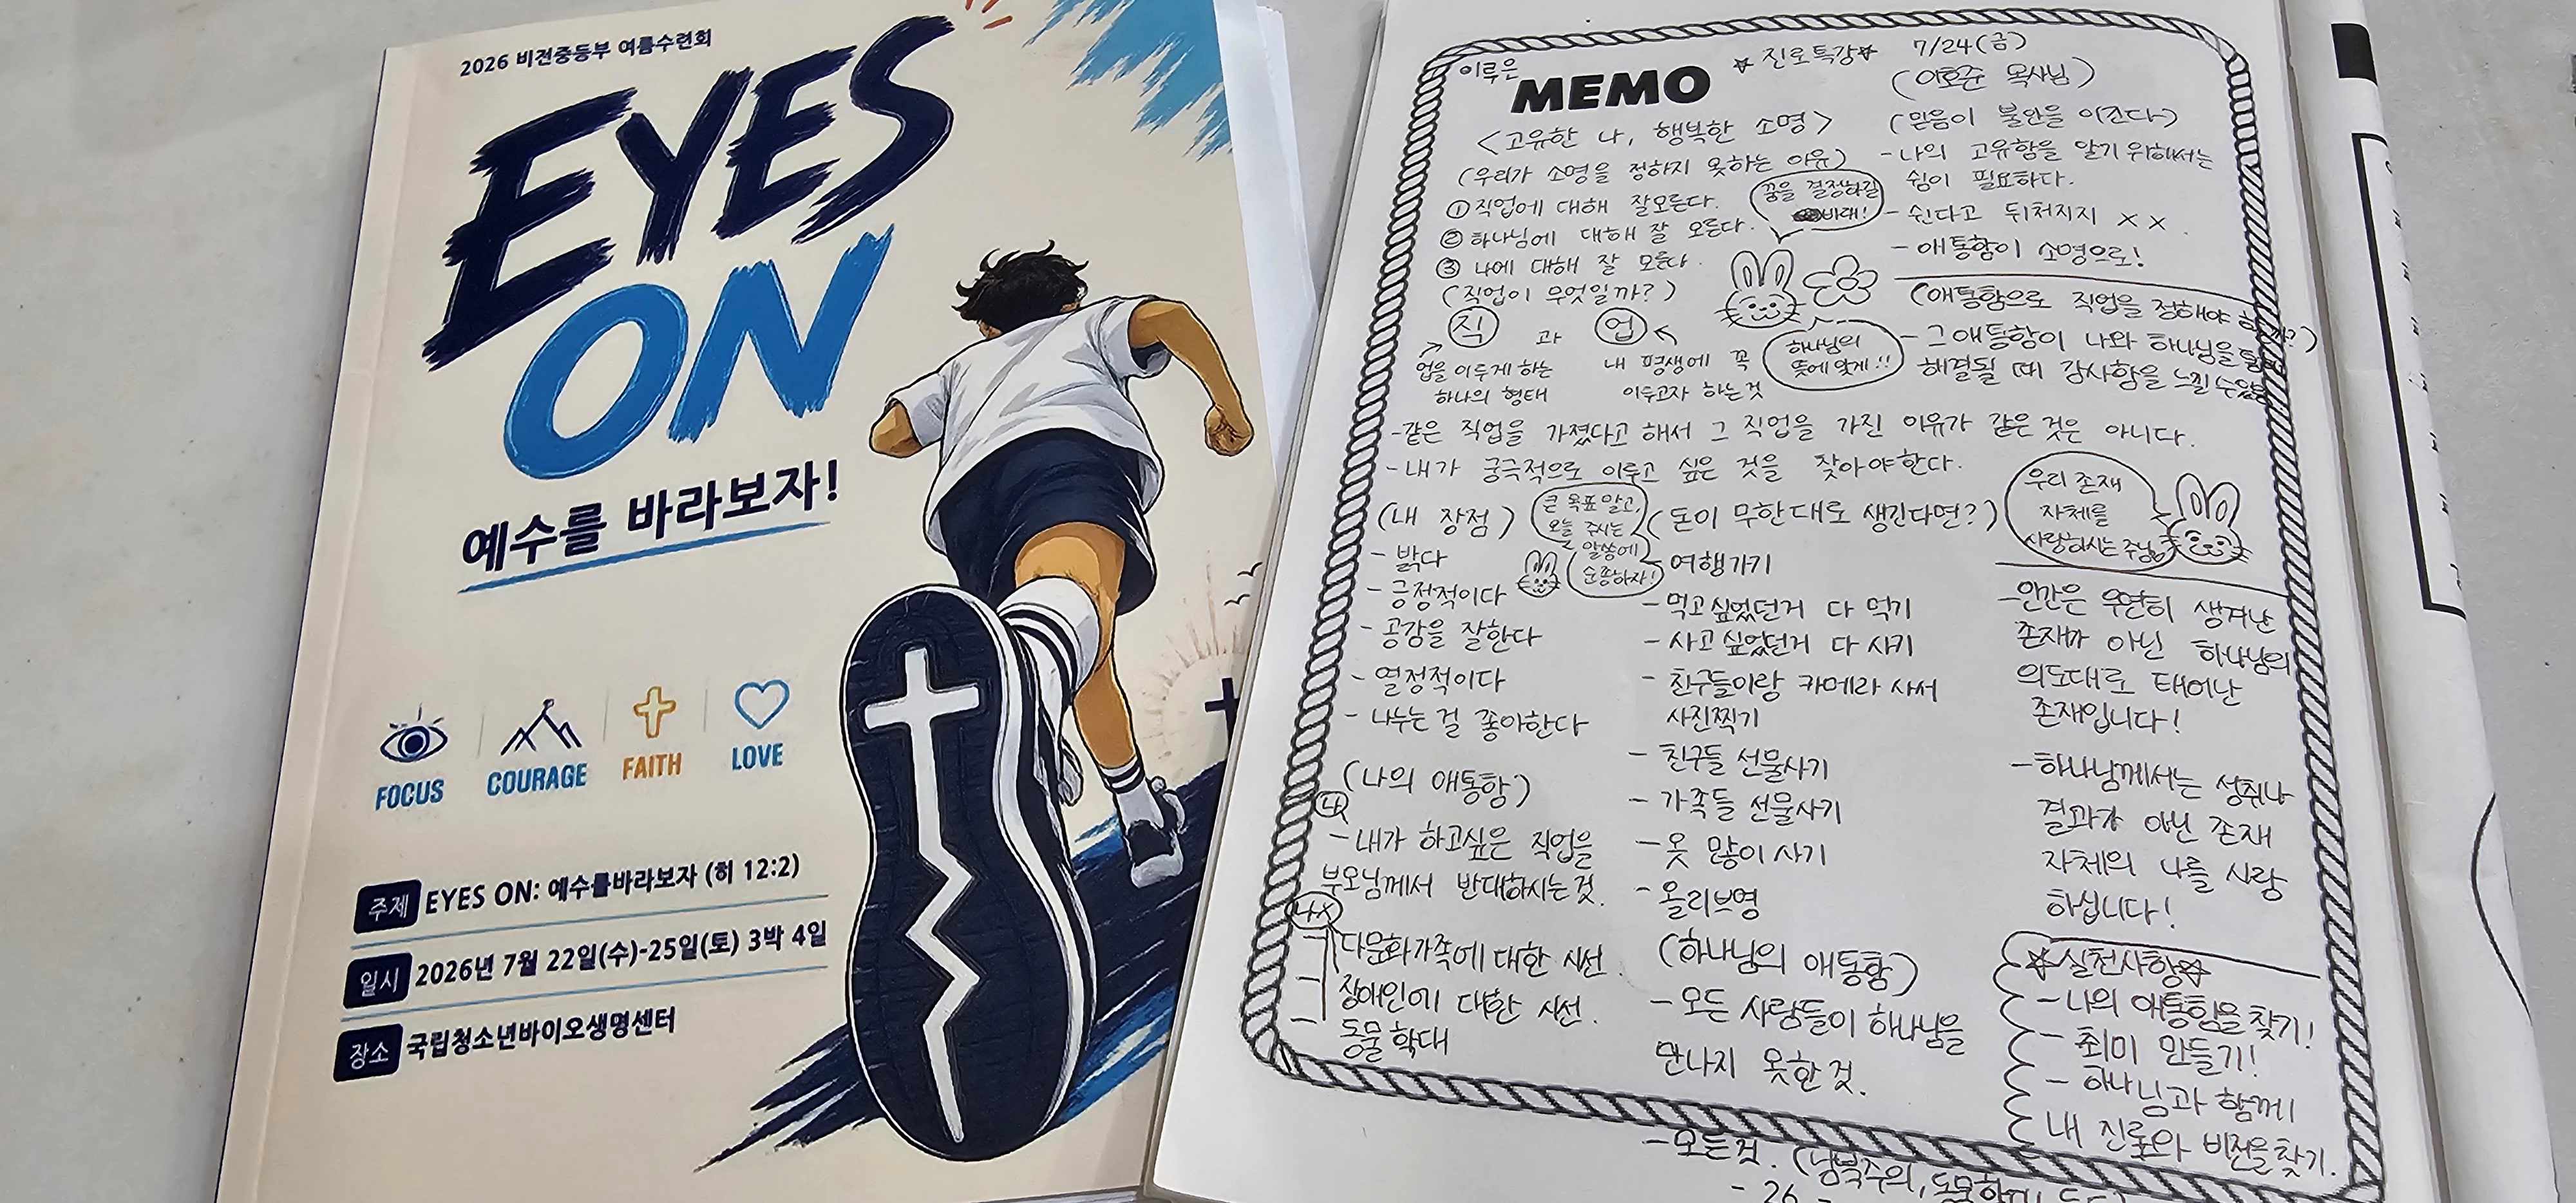 2026 비전중등부 여름수련회
EYES
ON
예수를 바라보자!
FOCUS
COURAGE
FAITH
LOVE
주제 EYES ON: 예수를바라보자 (히 12:2)
일시 2026년 7월 22일(수)-25일(토) 3박 4일
장소 국립청소년바이오생명센터
이루은
MEMO
☆진로특강☆ 7/24(금)
(이호준 목사님)
<고유한 나, 행복한 소명>
(우리가 소명을 정하지 못하는 이유)
①직업에 대해 잘모른다.
②하나님에 대해 잘 모른다.
③ 나에 대해 잘 모른다.
꿈을 결정하길
바래!
(직업이 무엇일까?)
직 과 업
업을 이루게 하는
하나의 형태
내 평생에 꼭
이루고자 하는것
하나님의
뜻에 맞게!!
(믿음이 불안을 이긴다)
-나의 고유함을 알기위해서는
쉼이 필요하다.
-쉰다고 뒤처지지 XX.
-애통함이 소명으로!
(애통함으로 직업을 정해야 하?)
-그애통함이 나와 하나님을
해결될 때 감사함을 느낄수있
-같은 직업을 가졌다고 해서 그 직업을 가진 이유가 같은것은 아니다.
-내가 궁극적으로 이루고 싶은 것을 찾아야한다.
(내 장점)
-밝다
-긍정적이다
-공감을 잘한다
-열정적이다
-나누는걸 좋아한다
큰 목표 말고,
오늘 주시는
말씀에
순종하자!
(돈이 무한대로 생긴다면?)
-여행가기
-먹고싶었던거 다 먹기
-사고싶었던거 다 사기
-친구들이랑 카메라 사서
사진찍기
-친구들 선물사기
-가족들 선물사기
-옷 많이사기
-올리브영
우리 존재
자체를
사랑하시는 주님
-인간은 우연히 생겨난
존재가 아닌 하나님의
의도대로 태어난
존재입니다!
-하나님께서는 성취나
결과가 아닌 존재
자체의 나를 사랑
하십니다!
(나의 애통함)
나
-내가 하고싶은 직업을
부모님께서 반대하시는것.
나X
-다문화가족에 대한 시선.
-장애인에 대한 시선.
-동물 학대
(하나님의 애통함)
-모든 사람들이 하나님을
만나지 못한것.
-모든것.
☆실천사항☆
-나의 애통함을 찾기!
-취미 만들기!
-하나님과 함께
내 진로와 비전을찾기.
- 26 -